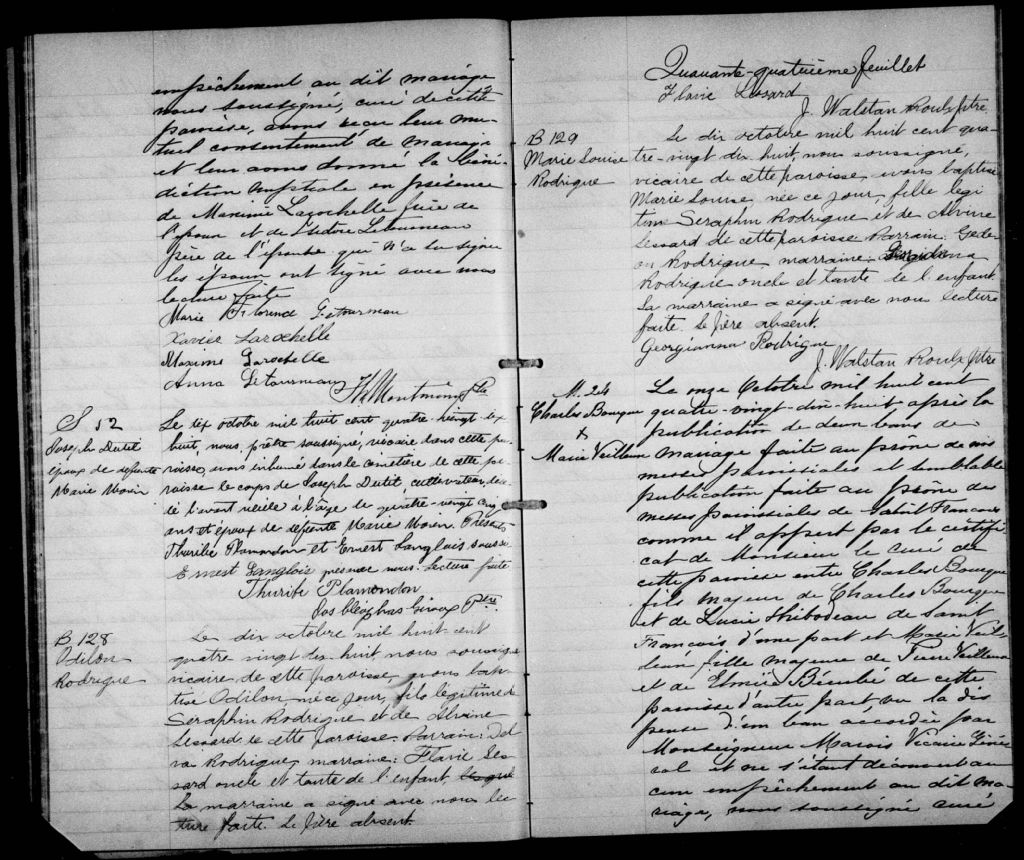 empêchement au dit mariage
nous soussigné, curé de cette
paroisse, avons reçu leur mu-
tuel consentement de mariage
et leur avons donné la béné-
diction nuptiale en présence
de Maxime Larochelle frère de
l'époux et de Isidore Letourneau
père de l'épouse qui n'a su signer
les époux ont signé avec nous
lecture faite
Marie Florence Letourneau
Xavier Larochelle
Maxime Larochelle
Anna Letourneau
Montminy Ptre
S 52
Joseph Dutil
époux de défunte
Marie Morin
Le dix octobre mil huit cent quatre-vingt-dix
huit, nous, prêtre soussigné, vicaire dans cette pa-
roisse, avons inhumé dans le cimetière de cette pa-
roisse le corps de Joseph Dutil cultivateur, décé-
dé l'avant veille à l'âge de quatre-vingt cinq
ans et époux de défunte Marie Morin. Présents
Thuribe Plamondon et Ernest Langlois soussi-
Ernest Langlois gnés avec nous. Lecture faite
Thuribe Plamondon
Jos Cléophas Giroux Ptre
B 128
Odilon
Rodrigue
Le dix octobre mil huit cent
quatre vingt dix huit nous soussigné
vicaire de cette paroisse avons bap-
tisé Odilon né ce jour, fils légitime de
Seraphin Rodrigue et de Alvine
Lessard de cette paroisse. Parrain:
Rodrigue, marraine: Flavie Les-
sard oncle et tante de l'enfant, lesquel
La marraine a signé avec nous lec-
ture faite. Le père absent.
Quarante-quatrième feuillet
Flavie Lessard
J. Walstan Roulx ptre
B 129
Marie Louise
Rodrigue
Le dix octobre mil huit cent qua-
tre-vingt dix huit, nous soussigné,
vicaire de cette paroisse, avons baptisé
Marie Louise, née ce jour, fille legi
time Seraphin Rodrigue et de Alvine
Lessard de cette paroisse Parrain: Gede-
on Rodrigue, marraine:
Rodrigue oncle et tante de l'enfant.
La marraine a signé avec nous lecture
faite. Le père absent.
Georgianna Rodrigue
J. Walstan Roulx ptre
M. 24
Charles Bourque
X
Marie Veilleux
Le onze Octobre mil huit cent
quatre-vingt-dix-huit après la
publication de deux bans de
mariage faite au prône de nos
messes paroissiales et semblable
publication faite au prône des
messes paroissiales de Saint François
comme il appert par le certifi
cat de Monsieur le curé de
cette paroisse entre Charles Bourque
fils majeur de Charles Bourque
et de Lucie Thibodeau de Saint
François d'une part et Marie Veil-
leux, fille majeure de Pierre Veilleux
et de Elmire Bérubé de cette
paroisse d'autre part, vu la dis
pense d'un ban accordée par
Monseigneur Marois Vicaire Géné
ral et ne s'étant découvert au
cun empêchement au dit ma-
riage, nous soussigné curé